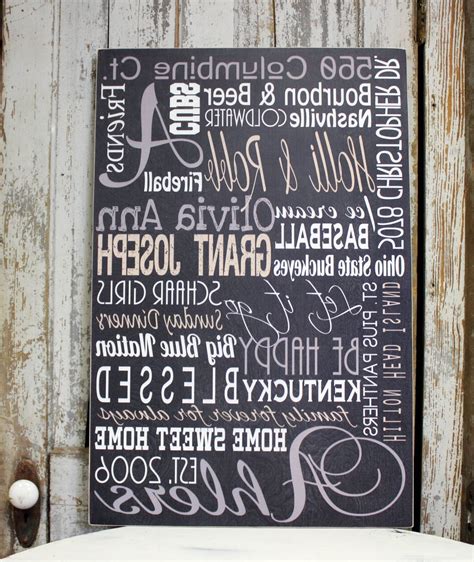 560 Columbine Ct.
Friends
A
CUBS
Bourbon & Beer
Nashville COLDWATER
5078 CHRISTOPHER DR.
Holli & Robb
Fireball
Olivia Ann
Ice cream
BASEBALL
GRANT JOSEPH
Ohio State Buckeyes
SCHAAR GIRLS
Let it go
ST. PIUS PANTHERS
HILTON HEAD ISLAND
Sunday Dinners
Big Blue Nation
BE HAPPY
BLESSED
KENTUCKY
family forever for always
HOME SWEET HOME
EST. 2006
Ahlers